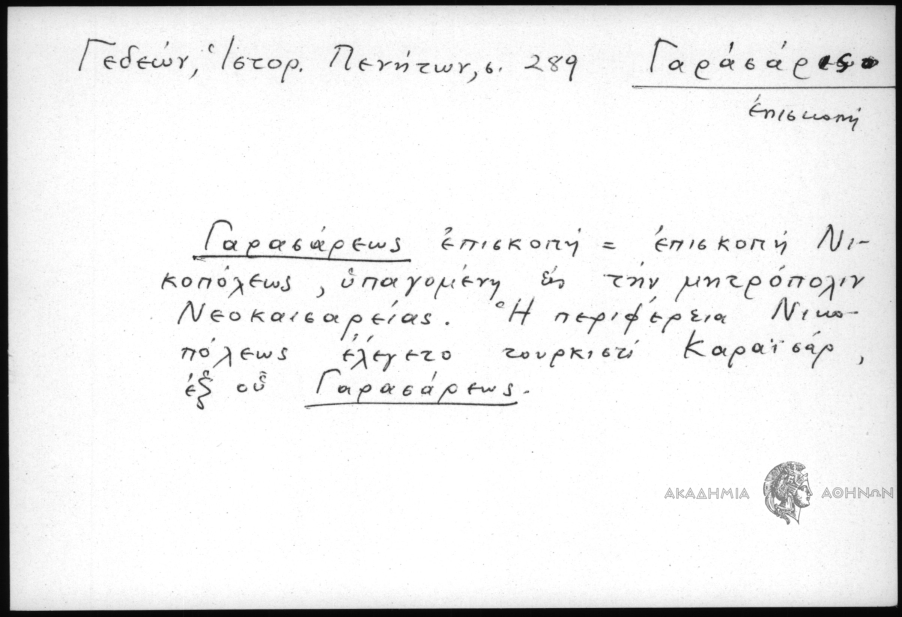 Γεδεών, Ἱστορ. Πενήτων, σ. 289
ἐπισκοπή
Γαρασάρεως ἐπισκοπή = ἐπισκοπή Νι-
κοπόλεως, ὑπαγομένη εἰς τήν μητρόπολιν
Νεοκαισαρείας. Ἡ περιφέρεια Νικο-
πόλεως ἐλέγετο τουρκιστί Καραϊσάρ,
ἐξ οὗ Γαρασάρεως.
ΑΚΑΔΗΜΙΑ ΑΘΗΝΩΝ